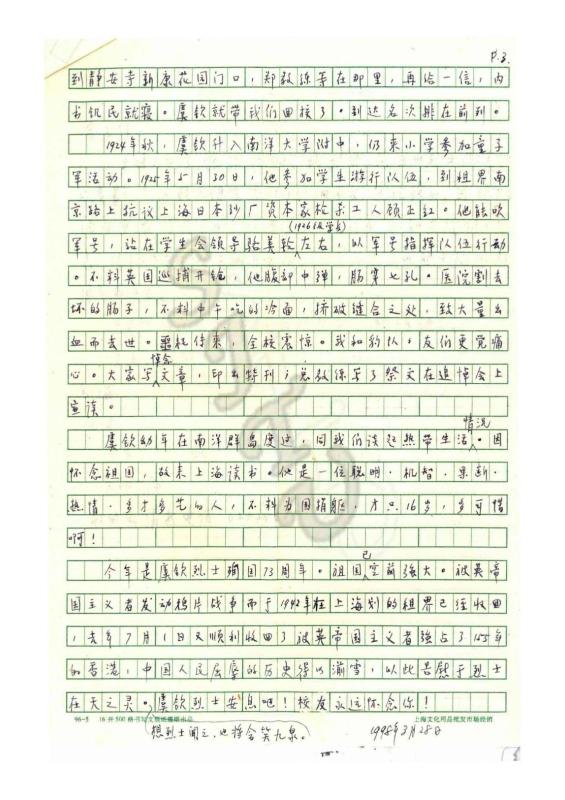 P.3.
到静安寺新康花园门口，郑教练等在那里，再给一信，内
书饥民就寝。虞钦就带我们回校了。到达名次排在前列。
1924年秋，虞钦升入南洋大学附中，仍来小学参加童子
军活动。1925年5月30日，他参加学生游行队伍，到租界南
京路上抗议上海日本纱厂资本家枪杀工人顾正红。他能吹
(1926级学长)
军号，站在学生会领导骆美轮左右，以军号指挥队伍行动
。不料英国巡捕开枪，他腹部中弹，肠穿七孔。医院割去
坏的肠子，不料中午吃的冷面，挤破缝合之处，致大量出
血而去世。噩耗传来，全校震惊。我和豹队队友们更觉痛
心。大家写悼念文章，印出特刊；总教练写了祭文在追悼会上
宣读。
虞钦幼年在南洋群岛度过，同我们谈起热带生活情况。因
怀念祖国，故来上海读书。他是一位聪明·机智·果断·
热情·多才多艺的人，不料为国捐躯，才只16岁，多可惜
啊！
今年是虞钦烈士殉国73周年。祖国已空前强大。被英帝
国主义者发动鸦片战争而于1942年在上海划的租界已经收回
，去年7月1日又顺利收回了被英帝国主义者强占了155年
的香港，中国人民屈辱的历史得以湔雪，以此告慰于烈士
在天之灵。虞钦烈士安息吧！校友永远怀念你！
96-5 16开500格书写文稿纸
上海文化用品批发市场经销
想烈士闻之，也将含笑九泉。
1998年3月28日